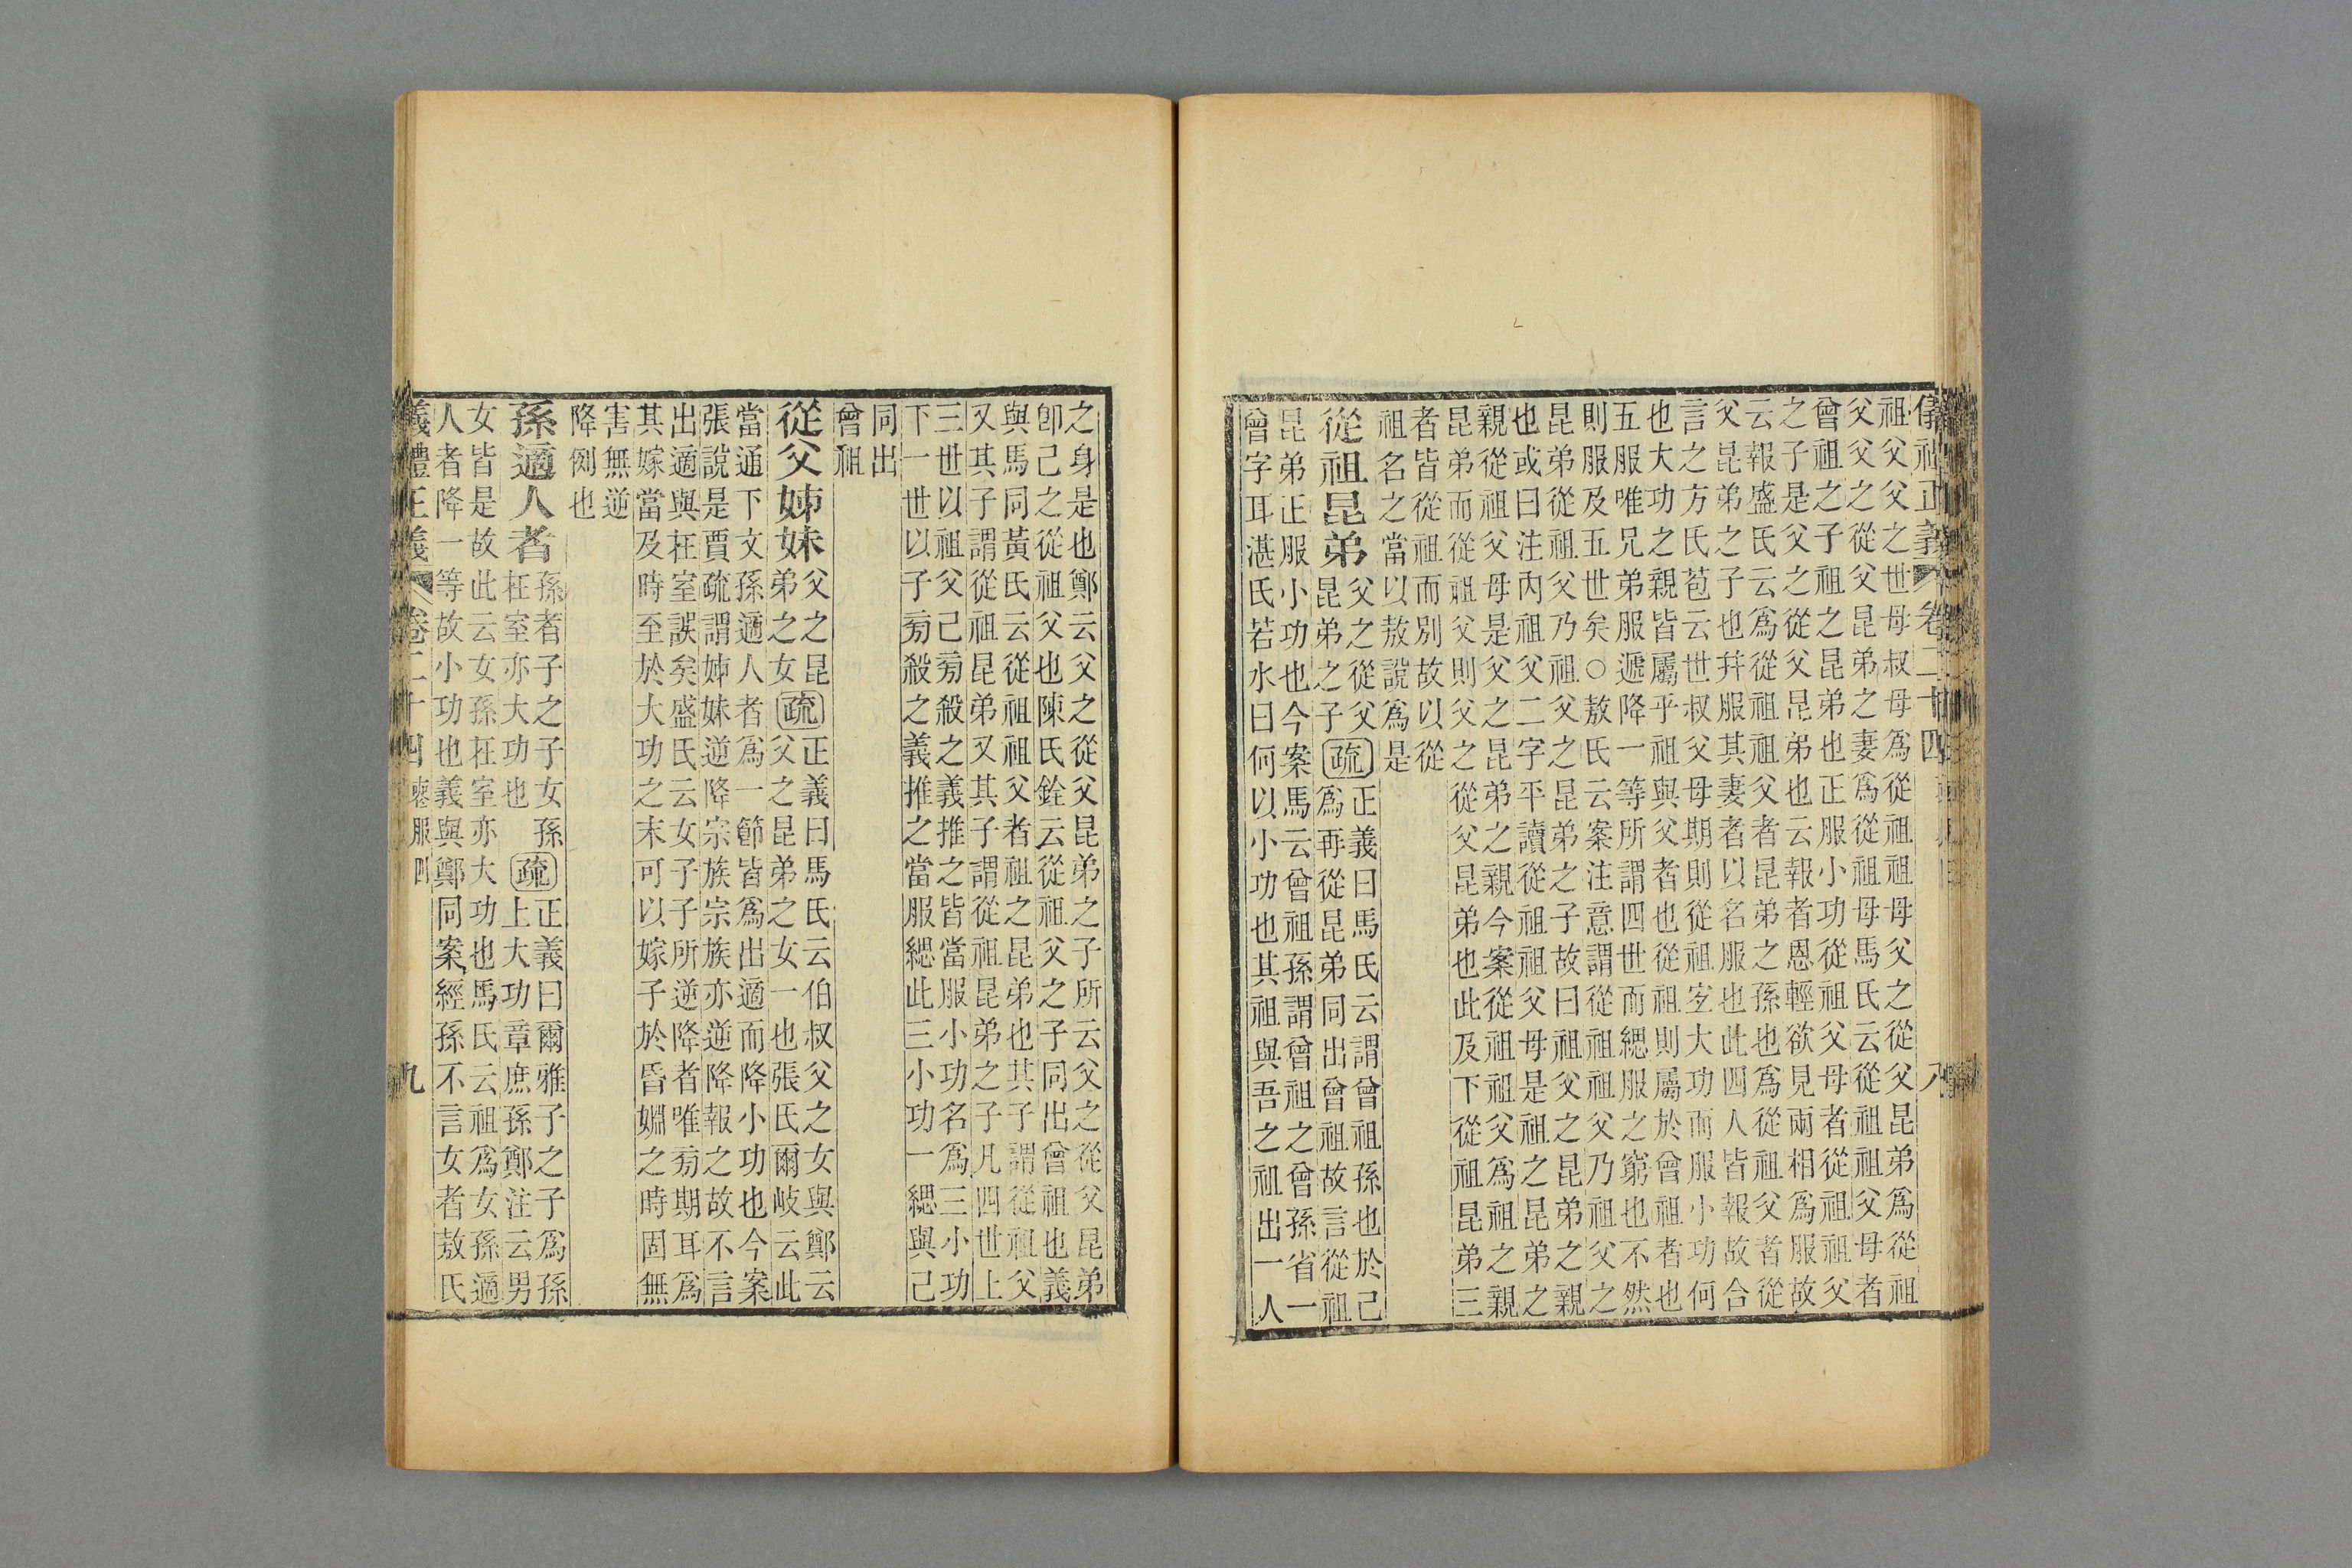 儀禮正義 卷二十四 八
祖父父之世母叔母爲從祖祖母父之從父昆弟爲從祖
父父之從父昆弟之妻爲從祖母馬氏云從祖祖父母者
曾祖之子祖之昆弟也正服小功從祖父母者從祖祖父
之子是父之從父昆弟也云報者恩輕欲見兩相爲服故
云報盛氏云爲從祖祖父者昆弟之孫也爲從祖父者從
父昆弟之子也幷服其妻者以名服也此四人皆報故合
言之方氏苞云世叔父母期則從祖宜大功而服小功何
也大功之親皆屬乎祖與父者也從祖則屬於曾祖者也
五服唯兄弟服遞降一等所謂四世而緦服之窮也不然
則服及五世矣○敖氏云案注意謂從祖祖父乃祖父之
昆弟從祖父乃祖父之昆弟之子故曰祖父之昆弟之親
也或曰注內祖父二字平讀從祖祖父母是祖之昆弟之
親從祖父母是父之昆弟之親今案從祖祖父爲祖之親
昆弟而從祖父則父之從父昆弟也此及下從祖昆弟三
者皆從祖而別故以從
祖名之當以敖說爲是
從祖昆弟 父之從父
昆弟之子 疏 正義曰馬氏云謂曾祖孫也於己
爲再從昆弟同出曾祖故言從祖
昆弟正服小功也今案馬云曾祖孫謂曾祖之曾孫省一
曾字耳湛氏若水曰何以小功也其祖與吾之祖出一人
之身是也鄭云父之從父昆弟之子所云父之從父昆弟
卽己之從祖父也陳氏銓云從祖父之子同出曾祖也義
與馬同黃氏云從祖祖父者祖之昆弟也其子謂從祖父
又其子謂從祖昆弟又其子謂從祖昆弟之子凡四世上
三世以祖父己旁殺之義推之皆當服小功名爲三小功
下一世以子旁殺之義推之當服緦此三小功一緦與己
同出
曾祖
從父姊妹 父之昆
弟之女 疏 正義曰馬氏云伯叔父之女與鄭云
父之昆弟之女一也張氏爾岐云此
當通下文孫適人者爲一節皆爲出適而降小功也今案
張說是賈疏謂姊妹逆降宗族宗族亦逆降報之故不言
出適與在室誤矣盛氏云女子子所逆降者唯旁期耳爲
其嫁當及時至於大功之末可以嫁子於昏姻之時固無
害無逆
降例也
孫適人者 孫者子之子女孫
在室亦大功也 疏 正義曰爾雅子之子爲孫
上大功章庶孫鄭注云男
女皆是故此云女孫在室亦大功也馬氏云祖爲女孫適
人者降一等故小功也義與鄭同案經孫不言女者敖氏
儀禮正義 卷二十四 喪服四 九